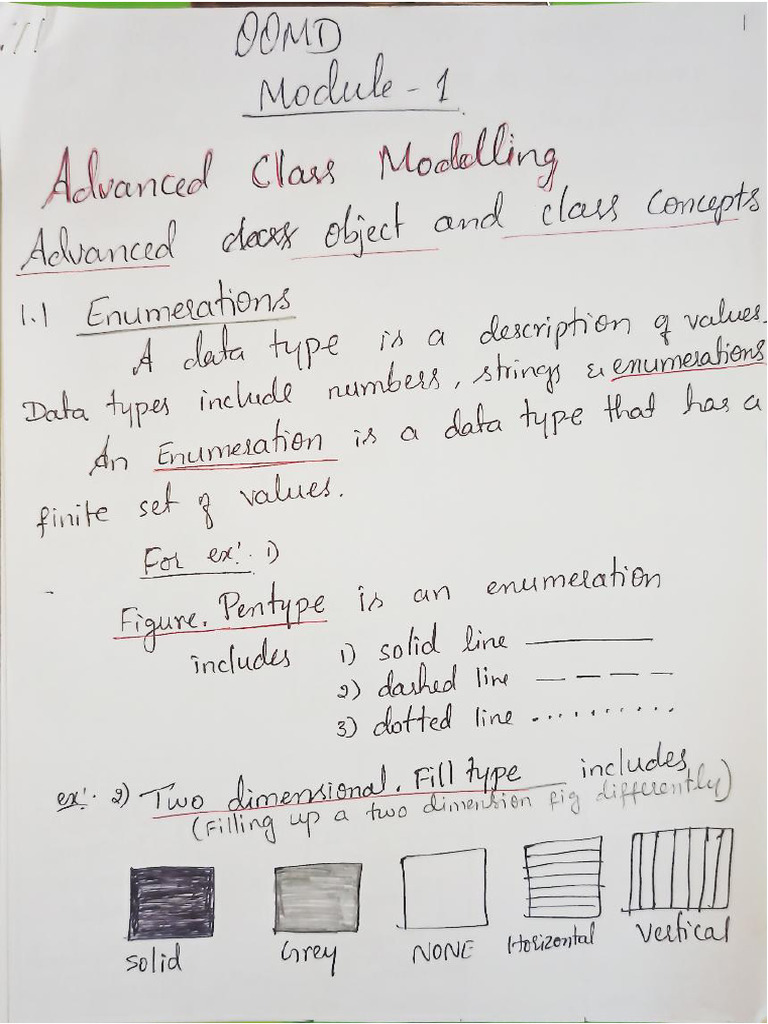 1
OOMD
Module - 1
Advanced Class Modelling
Advanced object and class concepts
1.1 Enumerations
A data type is a description of values.
Data types include numbers, strings & enumerations
An Enumeration is a data type that has a
finite set of values.
For ex:- 1)
Figure. Pentype is an enumeration
includes 1) solid line
2) dashed line
3) dotted line
ex:- 2) Two dimensional. Fill type includes
(Filling up a two dimension fig differently)
Solid Grey NONE Horizontal Vertical